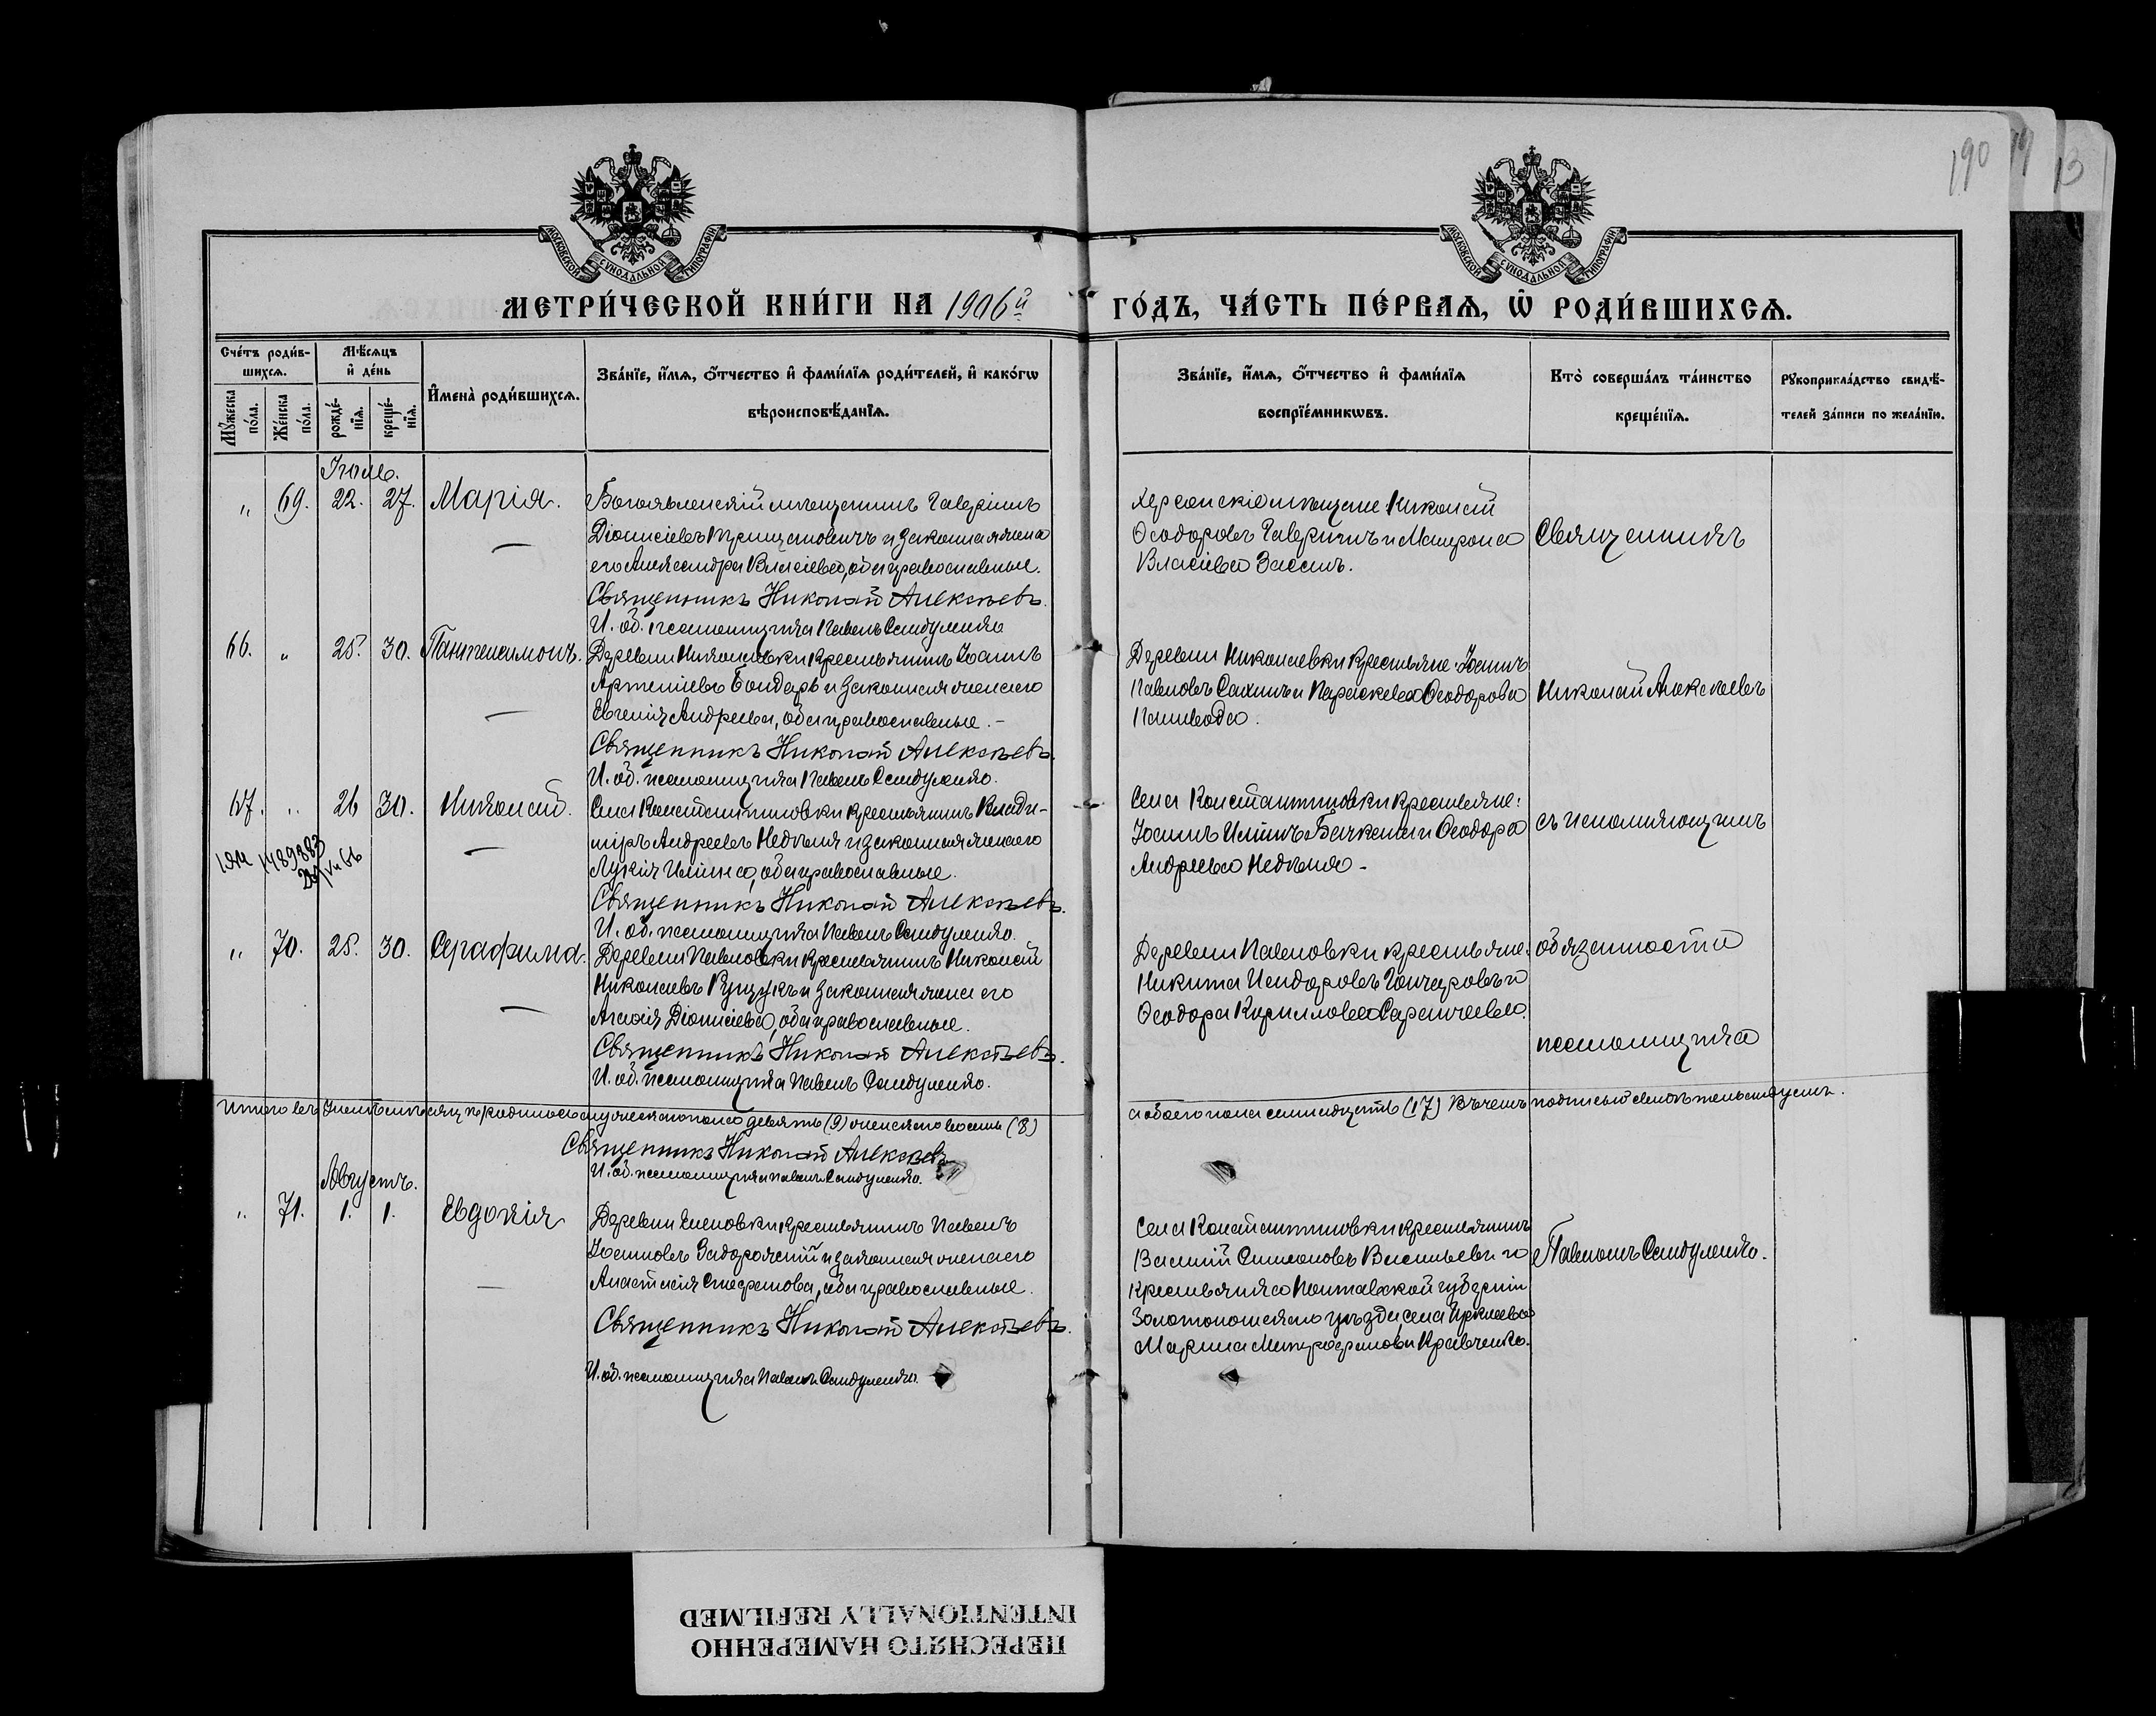 190
МОСКОВСКОЙ СУНОДАЛЬНОЙ ТИПОГРАФІИ
МОСКОВСКОЙ СУНОДАЛЬНОЙ ТИПОГРАФІИ
МЕТРИ́ЧЕСКОЙ КНИ́ГИ НА 1906й ГО́ДЪ, ЧА́СТЬ ПЕ́РВАѦ, Ѡ҆ РОДИ́ВШИХСѦ.
Сче́тъ роди́вшихсѧ.
Мꙋ́жеска по́ла.
Же́нска по́ла.
Мѣ́сѧцъ и҆ де́нь
рожде́нїѧ.
креще́нїѧ.
И҆мена̀ роди́вшихсѧ.
Зва́нїе, и҆́мѧ, ѻ҆́тчество и҆ фами́лїѧ роди́телей, и҆ како́гѡ
вѣроисповѣ́данїѧ.
Зва́нїе, и҆́мѧ, ѻ҆́тчество и҆ фами́лїѧ
воспрїе́мникѡвъ.
Кто̀ соверша́лъ та́инство
креще́нїѧ.
Рꙋкоприкла́дство свидѣ́-
телей за́писи по жела́нїю.
Іюль.
„ 69. 22. 27. Марія.
Богоявленскій мѣщанинъ Гавріилъ
Діонисіевъ и законная жена
его Александра Власіева, оба православные.
Священникъ Николай Алексѣевъ.
И. об. псаломщика Павелъ Сандуленко
Херсонскіе мѣщане: Николай
Ѳеодоровъ и Матрона
Власіева
Священникъ
66. „ 25. 30. Пантелеимонъ.
Деревни Николаевки крестьянинъ Іоаннъ
Артеміевъ Бондарь и законная жена его
Евгенія Андреева, оба православные. -
Священникъ Николай Алексѣевъ.
И. об. псаломщика Павелъ Сандуленко.
Деревни Николаевки крестьяне: Іоаннъ
Павловъ и Параскева Ѳеодорова
Паливода.
Николай Алексѣевъ
67. „ 26 30. Николай.
1489883
Села Константиновки крестьянинъ Влади-
миръ Андреевъ Недѣля и законная жена его
Лукія Ильина, оба православные.
Священникъ Николай Алексѣевъ.
И. об. псаломщика Павелъ Сандуленко.
Села Константиновки крестьяне:
Іоаннъ Ильинъ и Ѳеодора
Андреева Недѣля -
съ исполняющимъ
„ 70. 25. 30. Серафима.
Деревни Павловки крестьянинъ Николай
Николаевъ Кущукъ и законная жена его
Агафія Діонисіева, оба православные.
Священникъ Николай Алексѣевъ.
И. об. псаломщика Павелъ Сандуленко.
Деревни Павловки крестьяне:
Никита Исидоровъ Гончаровъ и
Ѳеодора Кириллова
обязанности
псаломщика
Итого въ Іюлѣ мѣсяцѣ родилось мужескаго пола девять (9) женскаго восемь (8)
а обоего пола семнадцать (17) въ чемъ подписью свидѣтельствуемъ.
Священникъ Николай Алексѣевъ
И. об. псаломщика Павелъ Сандуленко.
Августъ.
„ 71. 1. 1. Евдокія
Деревни Еленовки крестьянинъ Павелъ
Іоанновъ Задорожній и законная жена его
Анастасія Стефанова, оба православные.
Священникъ Николай Алексѣевъ.
И. об. псаломщика Павелъ Сандуленко.
Села Константиновки крестьянинъ
Василій Симеоновъ Васильевъ и
крестьянка Полтавской губерніи
Золотоношскаго уѣзда села Ирклеева
Марина Митрофанова Кравченко.
Павломъ Сандуленко.
ПЕРЕСНЯТО НАМЕРЕННО
INTENTIONALLY REFILMED